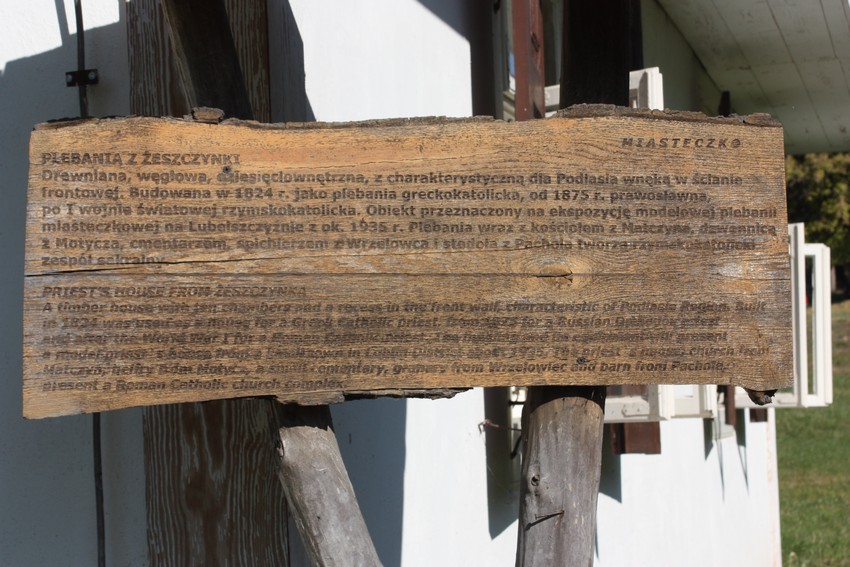 MIASTECZKO
PLEBANIA Z ŻESZCZYNKI
Drewniana, węgłowa, dziesięciownętrzna, z charakterystyczną dla Podlasia wnęką w ścianie
frontowej. Budowana w 1824 r. jako plebania greckokatolicka, od 1875 r. prawosławna,
po I wojnie światowej rzymskokatolicka. Obiekt przeznaczony na ekspozycję modelowej plebanii
miasteczkowej na Lubelszczyźnie z ok. 1935 r. Plebania wraz z kościołem z Matczyna, dzwonnicą
z Motycza, cmentarzem, spichlerzem z Wrzelowca i stodołą z Pachola tworzą rzymskokatolicki
zespół sakralny.
PRIEST'S HOUSE FROM ŻESZCZYNKA
A timber house with ten chambers and a recess in the front wall, characteristic of Podlasie Region. Built
in 1824 was used as a house for a Greek Catholic priest, from 1875 for a Russian Orthodox priest
and after the World War I for a Roman Catholic priest. will present
a model priest's house from a town in Lublin District about 1935. The priest's house, church from
Matczyn, belfry from Motycz, a small cementary, granary from Wrzelowiec and barn from Pachole
present a Roman Catholic church complex.